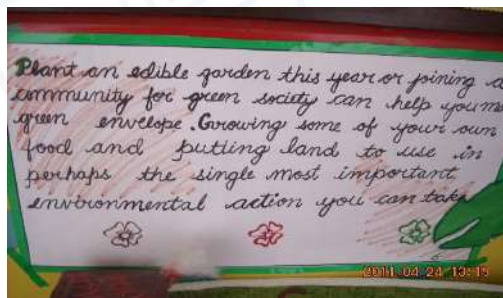 Plant an edible garden this year or joining a
community for green society can help you
green envelope. Growing some of your own
food and putting land to use in
perhaps the single most important
environmental action you can take
2011.04.24 13:15